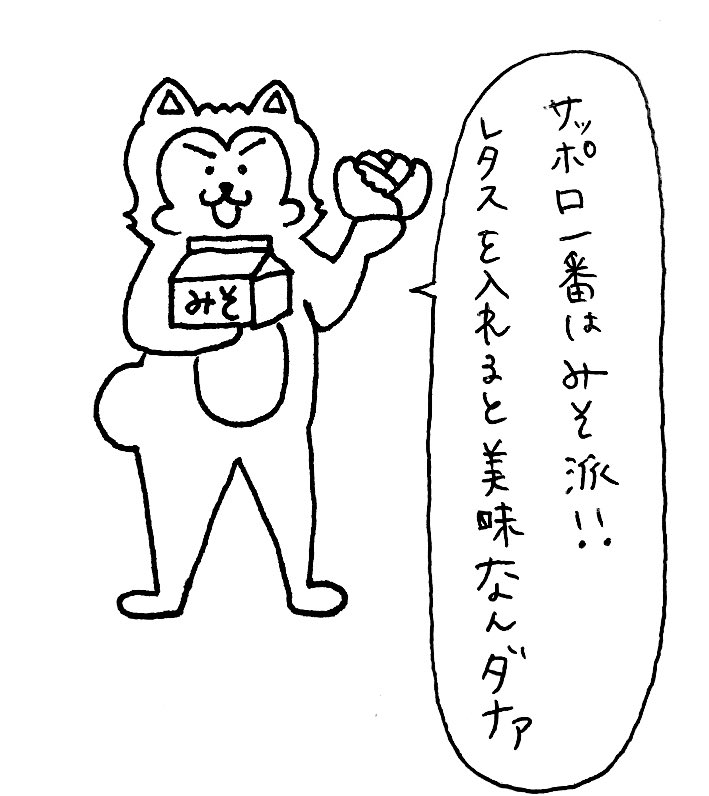 サッポロ一番はみそ派!!
レタスを入れると美味なんダナァ
みそ